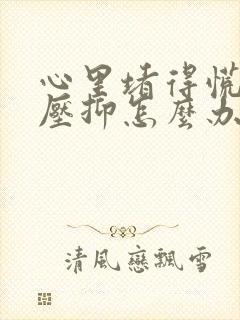 心里堵得慌
壓抑怎麼办
清風戀飄雪